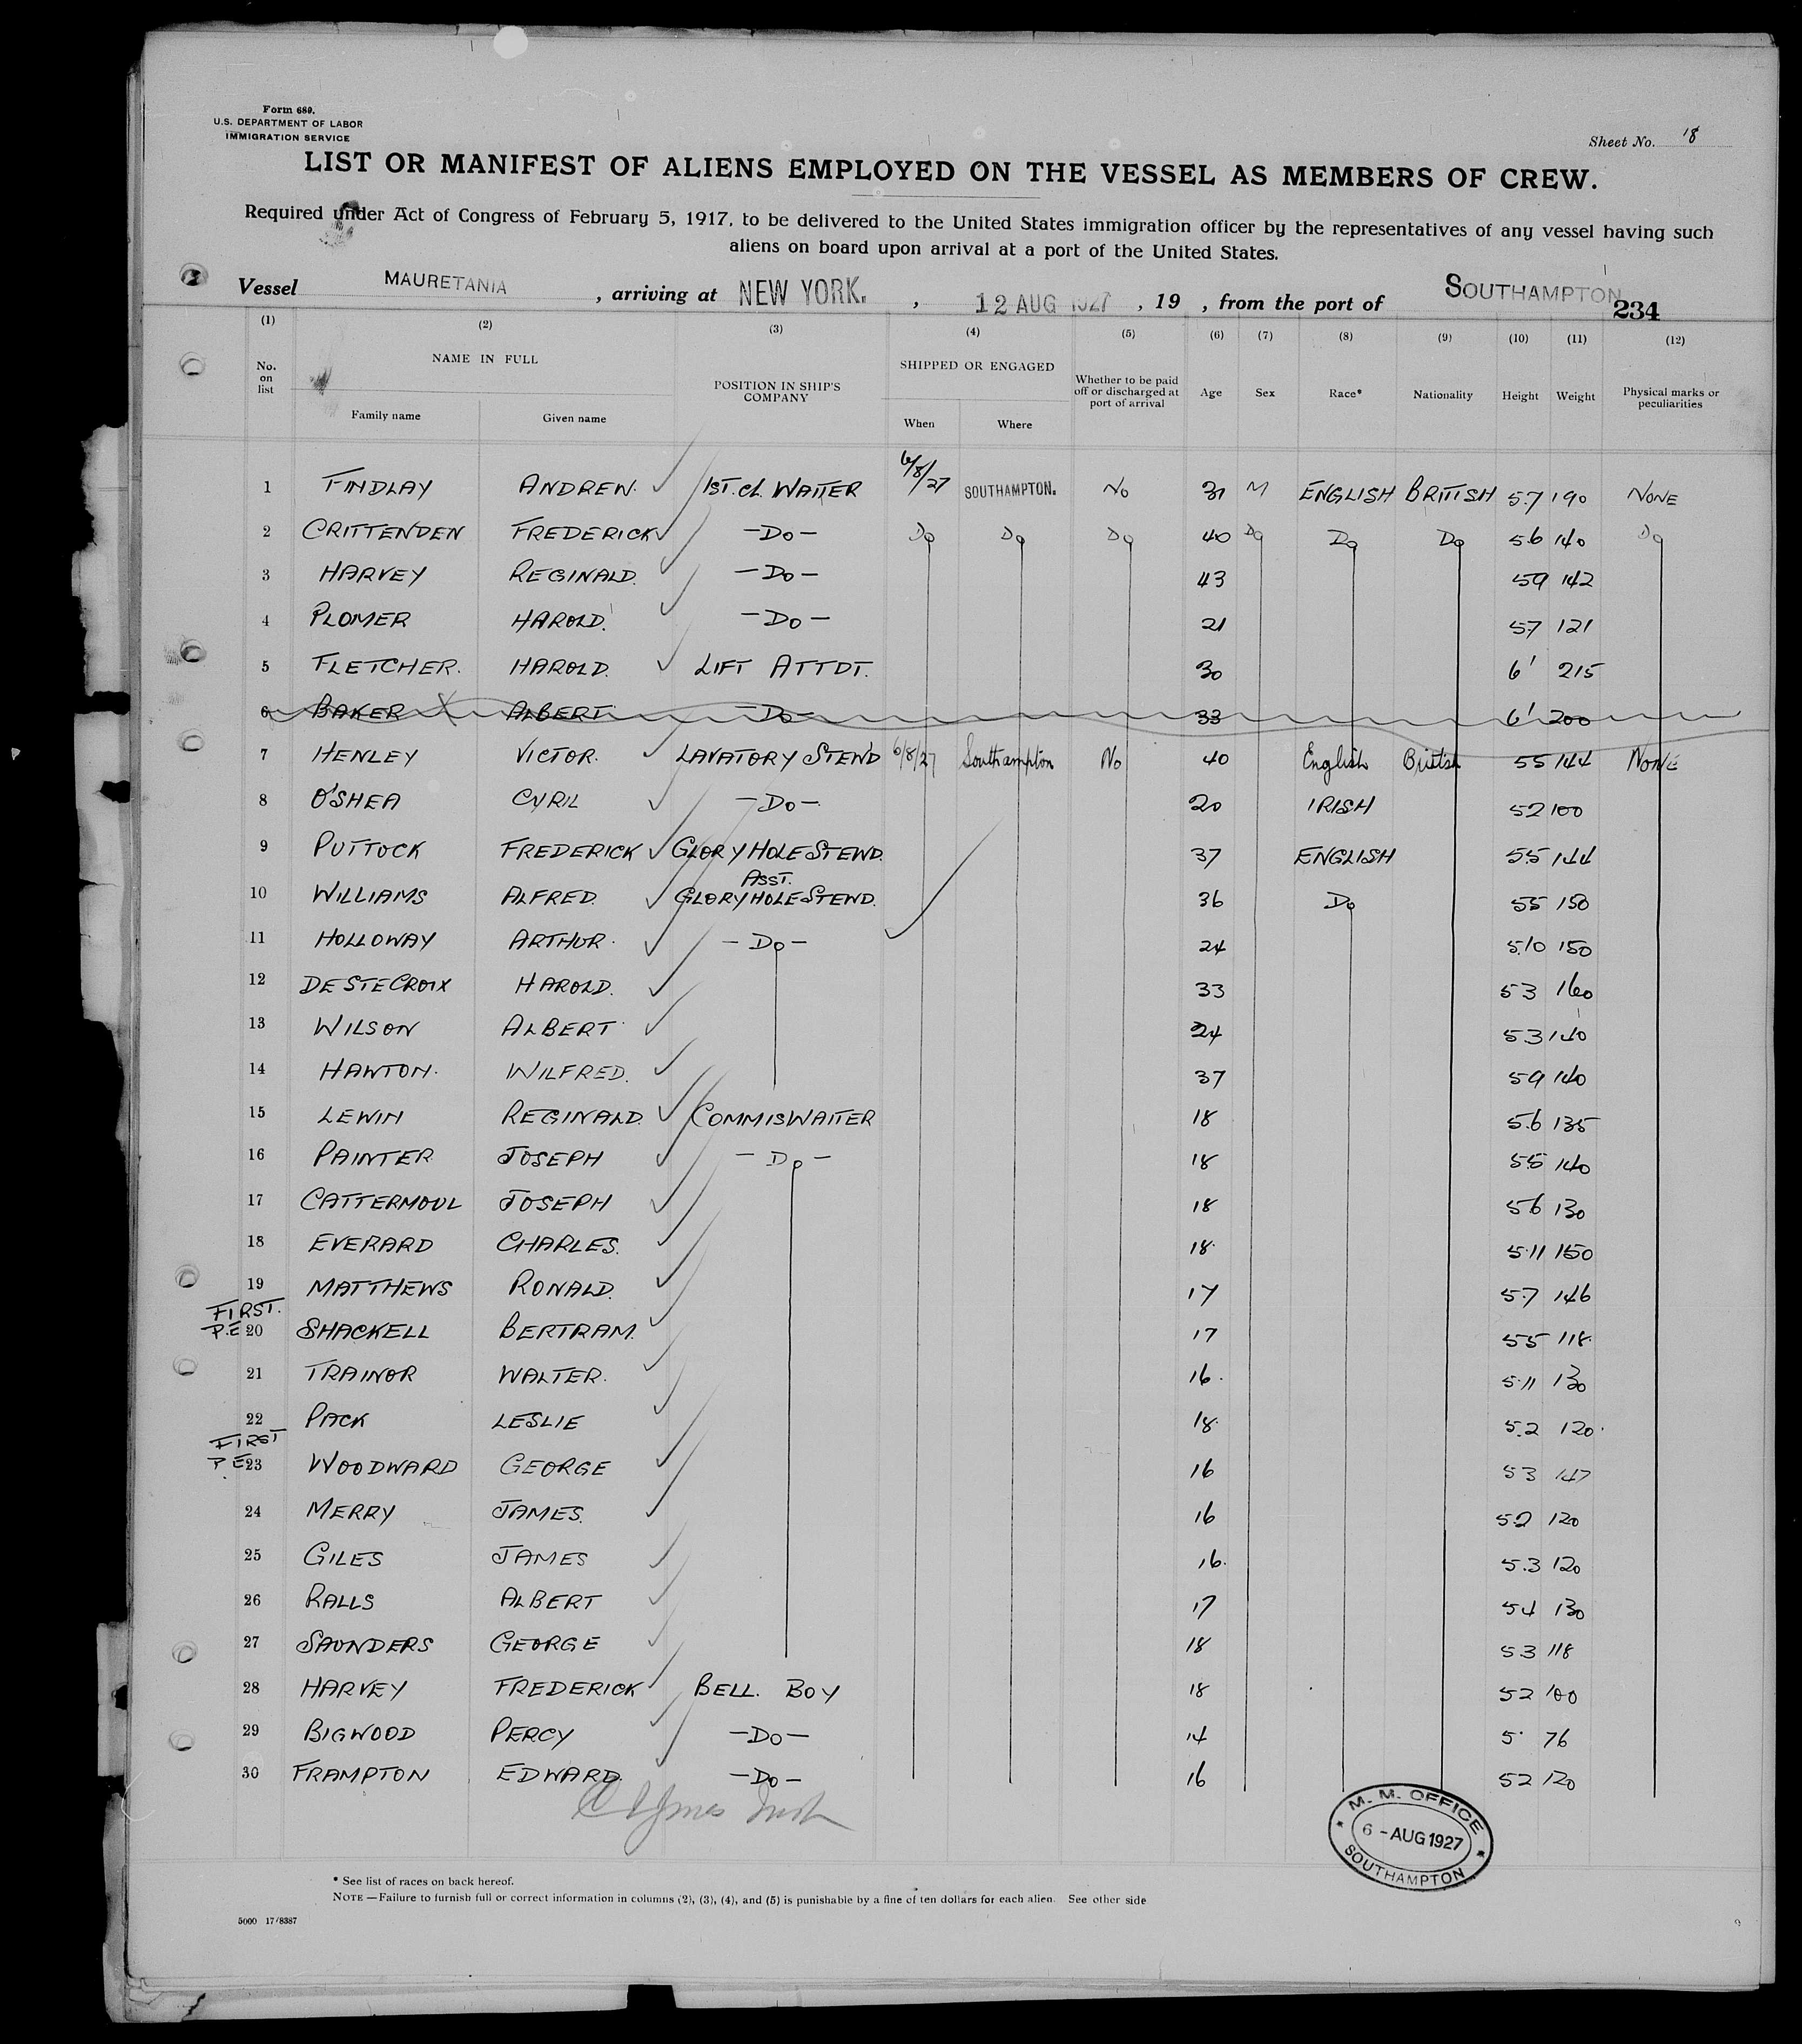 Form 689.
U.S. DEPARTMENT OF LABOR
IMMIGRATION SERVICE
Sheet No. 18
LIST OR MANIFEST OF ALIENS EMPLOYED ON THE VESSEL AS MEMBERS OF CREW.
Required under Act of Congress of February 5, 1917, to be delivered to the United States immigration officer by the representatives of any vessel having such
aliens on board upon arrival at a port of the United States.
Vessel MAURETANIA , arriving at NEW YORK. , 12 AUG 1927 , 19 , from the port of SOUTHAMPTON
234
(1) (2) (3) (4) (5) (6) (7) (8) (9) (10) (11) (12)
No. on list NAME IN FULL Family name Given name POSITION IN SHIP'S COMPANY SHIPPED OR ENGAGED When Where Whether to be paid off or discharged at port of arrival Age Sex Race* Nationality Height Weight Physical marks or peculiarities
1 FINDLAY ANDREW. 1ST. Cl. WAITER 6/8/27 SOUTHAMPTON. No 31 M ENGLISH BRITISH 5.7 190 NONE
2 CRITTENDEN FREDERICK -Do- Do Do Do 40 Do Do Do 5.6 140 Do
3 HARVEY REGINALD. -Do- 43 59 142
4 PLOMER HAROLD. -Do- 21 57 121
5 FLETCHER. HAROLD. LIFT ATTDT. 30 6' 215
6 BAKER ALBERT -Do- 33 6' 200
7 HENLEY VICTOR. LAVATORY STEWD 6/8/27 Southampton No 40 English British 55 144 NONE
8 O'SHEA CYRIL -Do- 20 IRISH 52 100
9 PUTTOCK FREDERICK GLORY HOLE STEWD. 37 ENGLISH 5.5 144
10 WILLIAMS ALFRED. ASST. GLORY HOLE STEWD. 36 Do 55 150
11 HOLLOWAY ARTHUR. -Do- 24 5.10 150
12 DE STE CROIX HAROLD. 33 53 160
13 WILSON ALBERT 24 5.3 140
14 HAWTON. WILFRED. 37 59 140
15 LEWIN REGINALD. COMMIS WAITER 18 5.6 135
16 PAINTER JOSEPH -Do- 18 55 140
17 CATTERMOUL JOSEPH 18 56 130
18 EVERARD CHARLES. 18. 5.11 150
19 MATTHEWS RONALD. 17 5.7 146
FIRST.
P.E 20 SHACKELL BERTRAM. 17 55 118.
21 TRAINOR WALTER. 16. 5.11 130
22 PACK LESLIE 18. 5.2 120.
FIRST
P.E 23 WOODWARD GEORGE 16 53 147
24 MERRY JAMES. 16 5.2 120
25 GILES JAMES 16. 5.3 120
26 RALLS ALBERT 17 54 130
27 SAUNDERS GEORGE 18 53 118
28 HARVEY FREDERICK BELL. BOY 18 52 100
29 BIGWOOD PERCY -Do- 14 5. 76
30 FRAMPTON EDWARD. -Do- 16 52 120
M. M. OFFICE
6 - AUG 1927
SOUTHAMPTON
* See list of races on back hereof.
NOTE—Failure to furnish full or correct information in columns (2), (3), (4), and (5) is punishable by a fine of ten dollars for each alien. See other side
5000 17/8387